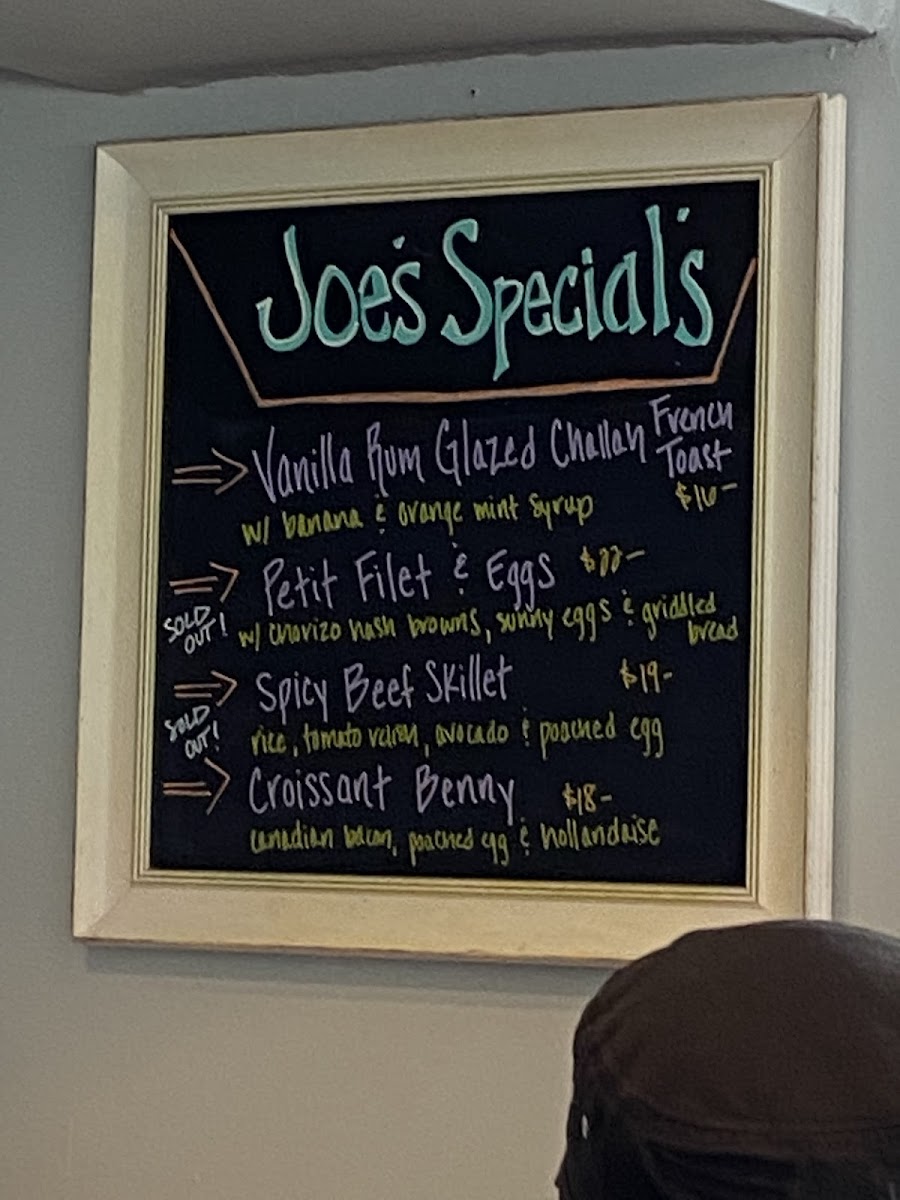 Joe's Special's
Vanilla Rum Glazed Challah French Toast
$16-
w/ banana & orange mint syrup
Petit Filet & Eggs $22-
SOLD OUT!
w/ chorizo hash browns, sunny eggs & griddled bread
Spicy Beef Skillet $19-
SOLD OUT!
rice, tomato relish, avocado & poached egg
Croissant Benny $18-
canadian bacon, poached egg & hollandaise